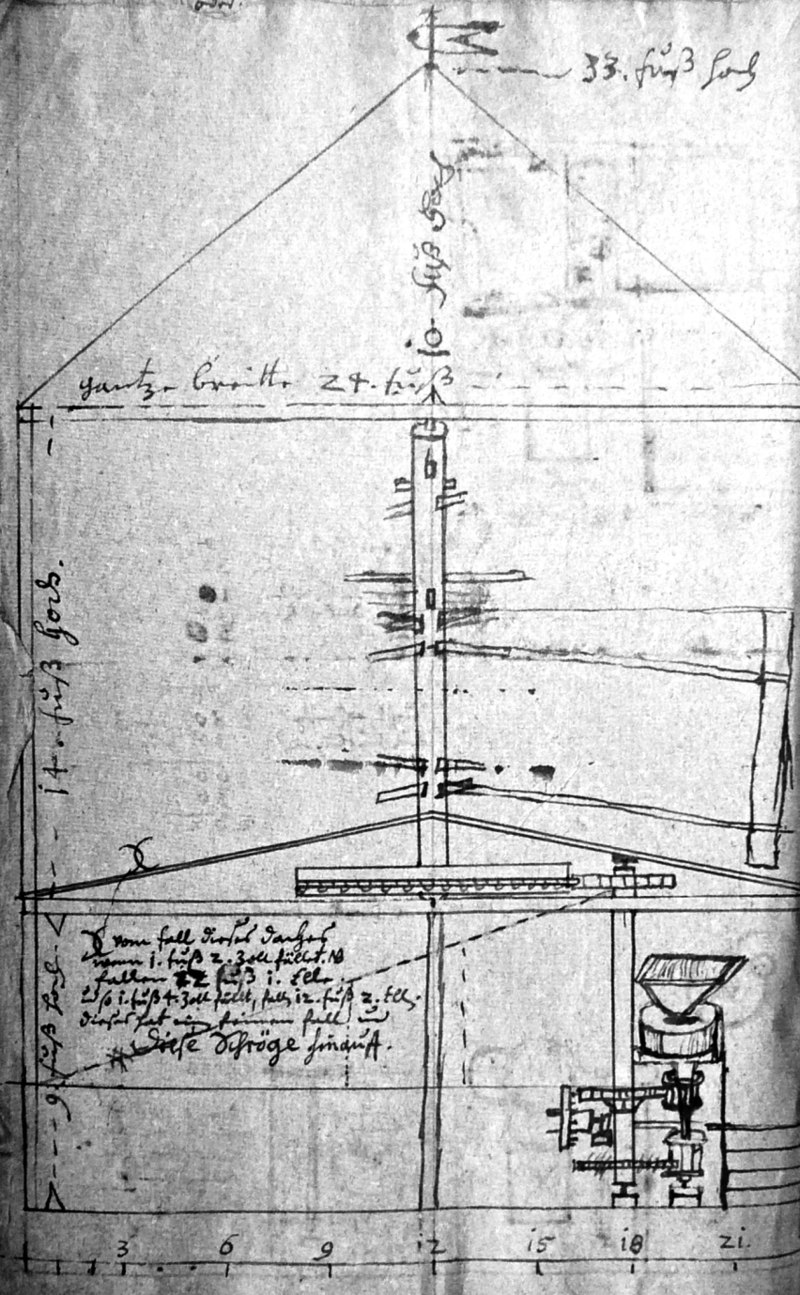 oder.
33. fuß hoch
10. fuß hoch
gantze breitte 24. fuß
14. fuß hoch.
vom fall dieses daches
wenn 1. fuß 2. Zoll fällt.
fallen 22 fuß 1. Elle
1. fuß 4. Zoll fällt, fall 12. fuß 2. Elle.
dieses hat ein fall
diese Schröge hinauff.
9. fuß hoch
3 6 9 12 15 18 21.